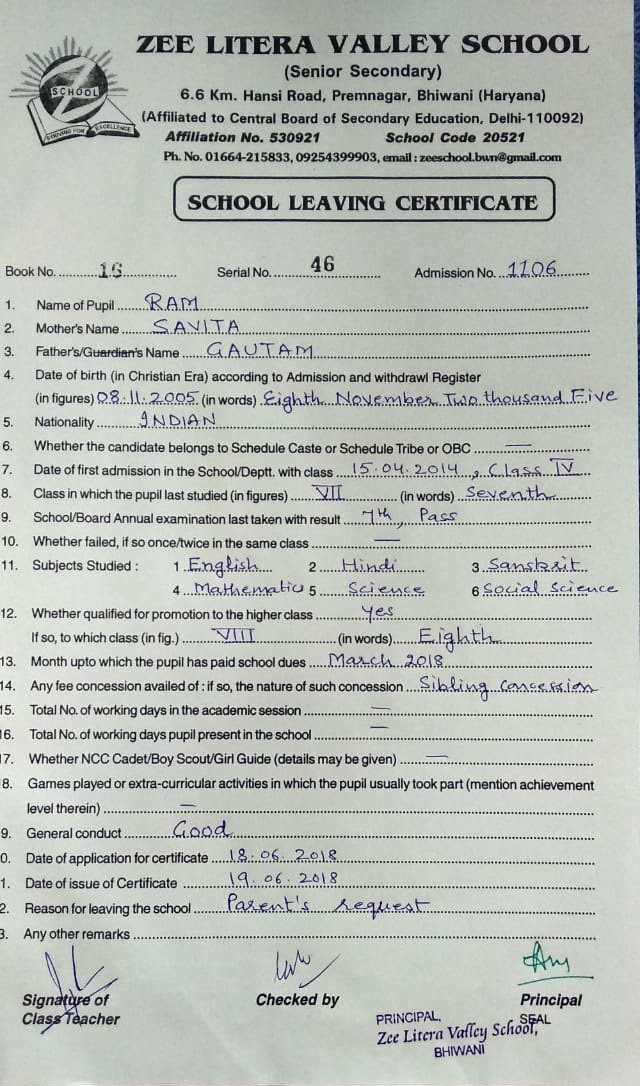 ZEE LITERA VALLEY SCHOOL
(Senior Secondary)
6.6 Km. Hansi Road, Premnagar, Bhiwani (Haryana)
(Affiliated to Central Board of Secondary Education, Delhi-110092)
Affiliation No. 530921 School Code 20521
Ph. No. 01664-215833, 09254399903, email : zeeschool.bwn@gmail.com
SCHOOL
STRIVING FOR EXCELLENCE
SCHOOL LEAVING CERTIFICATE
Book No. 16 Serial No. 46 Admission No. 1106
1. Name of Pupil RAM
2. Mother's Name SAVITA
3. Father's/Guardian's Name GAUTAM
4. Date of birth (in Christian Era) according to Admission and withdrawl Register
(in figures) 08.11.2005 (in words) Eighth November Two thousand Five
5. Nationality INDIAN
6. Whether the candidate belongs to Schedule Caste or Schedule Tribe or OBC —
7. Date of first admission in the School/Deptt. with class 15.04.2014, Class IV
8. Class in which the pupil last studied (in figures) VII (in words) Seventh
9. School/Board Annual examination last taken with result 7th, Pass
10. Whether failed, if so once/twice in the same class —
11. Subjects Studied : 1 English 2 Hindi 3 Sanskrit
4 Mathematics 5 Science 6 Social Science
12. Whether qualified for promotion to the higher class Yes
If so, to which class (in fig.) VIII (in words) Eighth
13. Month upto which the pupil has paid school dues March 2018
14. Any fee concession availed of : if so, the nature of such concession Sibling concession
15. Total No. of working days in the academic session —
16. Total No. of working days pupil present in the school —
17. Whether NCC Cadet/Boy Scout/Girl Guide (details may be given) —
8. Games played or extra-curricular activities in which the pupil usually took part (mention achievement
level therein) —
9. General conduct Good
0. Date of application for certificate 18.06.2018
1. Date of issue of Certificate 19.06.2018
2. Reason for leaving the school Parent's request
3. Any other remarks
Signature of Checked by Principal
Class Teacher SEAL
PRINCIPAL,
Zee Litera Valley School,
BHIWANI